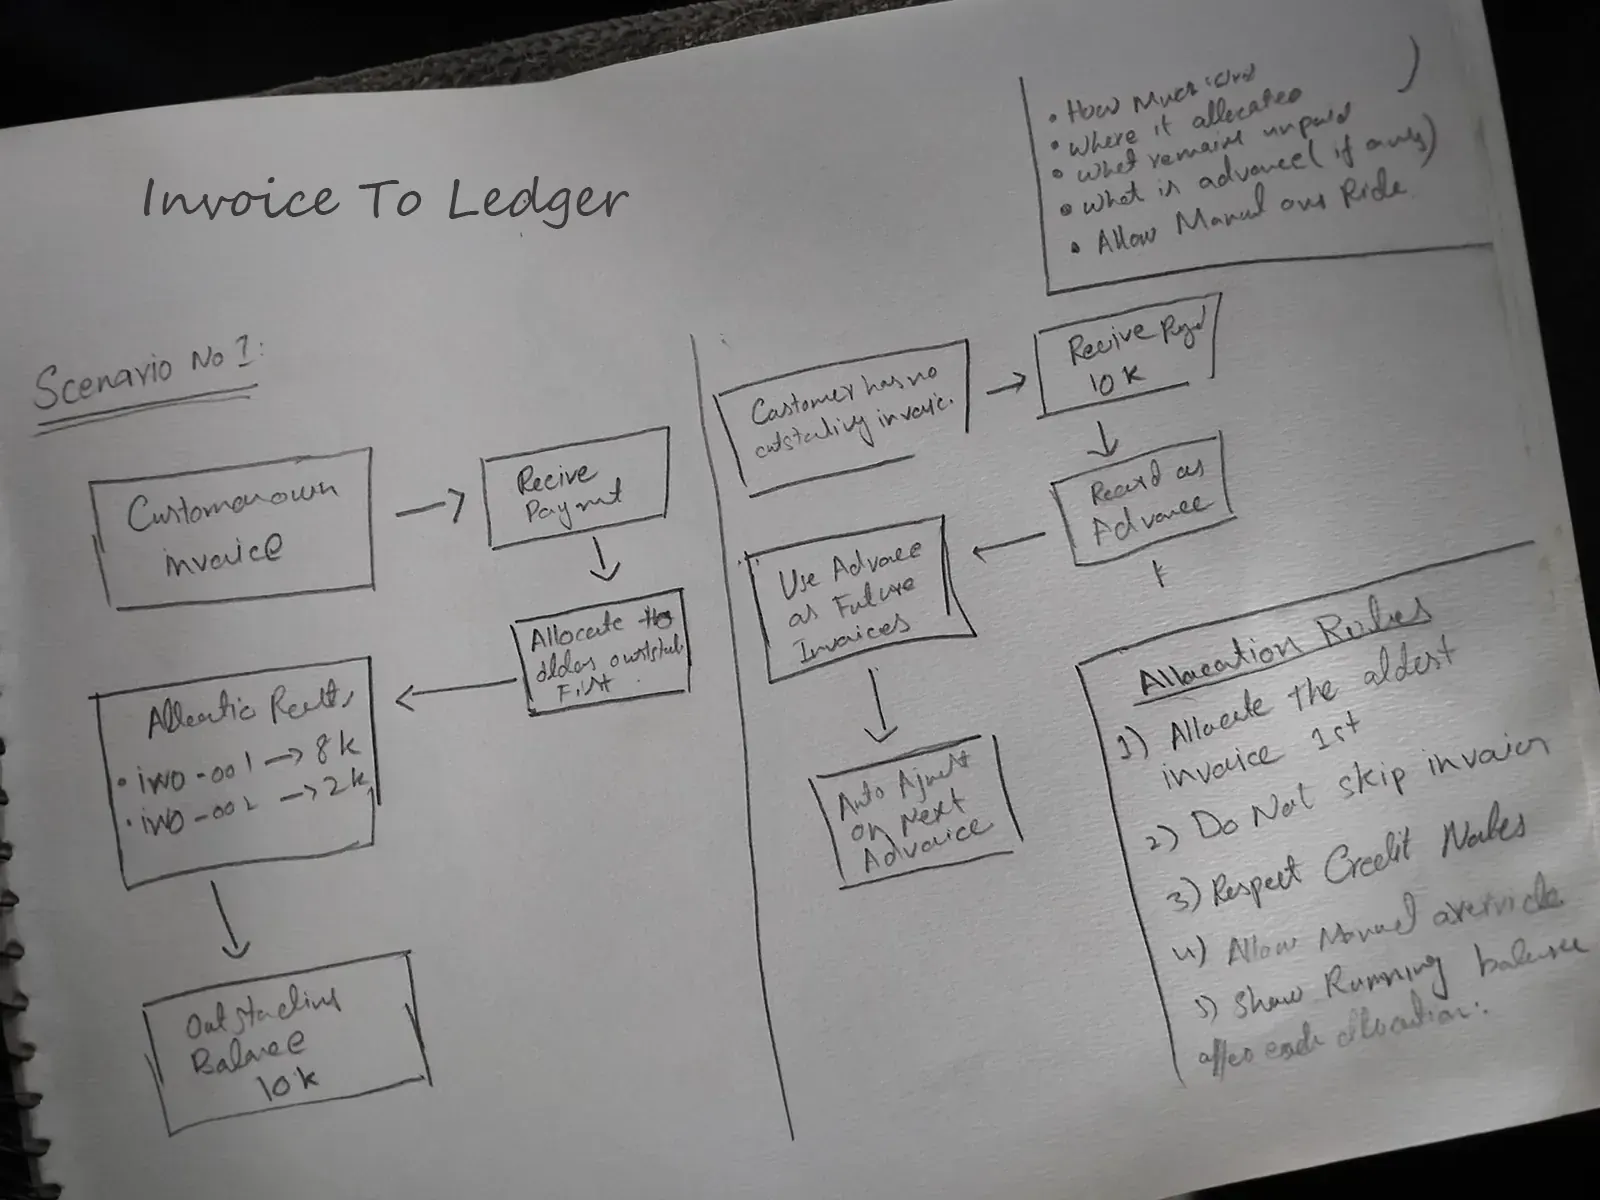 Invoice To Ledger
• How Much
• Where it allocated
• What remains unpaid
• What is advance (if any)
• Allow Manual over Ride
Scenario No 1:
Customer own
invoice
Recive
Payment
Allocate the
oldes
First
Allocatio Reslts
• inv0-001 → 8k
• inv0-002 → 2k
Outstading
Balance
10k
Customer has no
outstading invoic.
Recive
10K
Record as
Advance
Use Advance
as Future
Invoices
Auto Ajust
on Next
Advoice
Allocation Rules
1) Allocate the oldest
invoice 1st
2) Do Not skip invoices
3) Respect Credit Notes
4) Allow Manual override
5) Show Running balance
after each allocation: